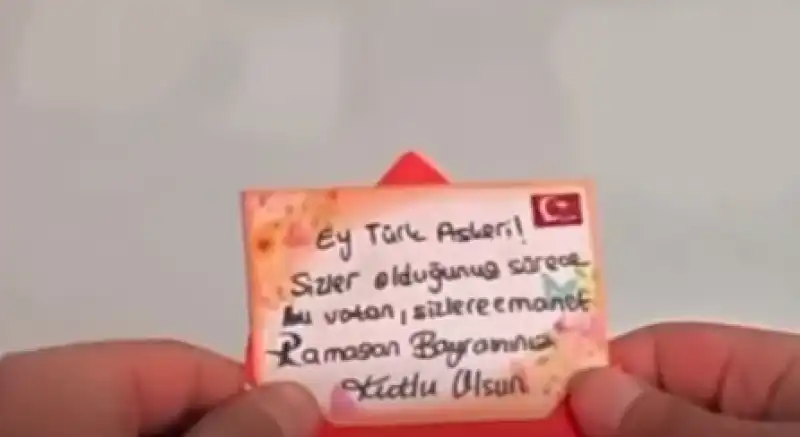 Ey Türk Askeri!
Sizler olduğunuz sürece
bu vatan, sizlere emanet
Ramazan Bayramınız
Kutlu Olsun